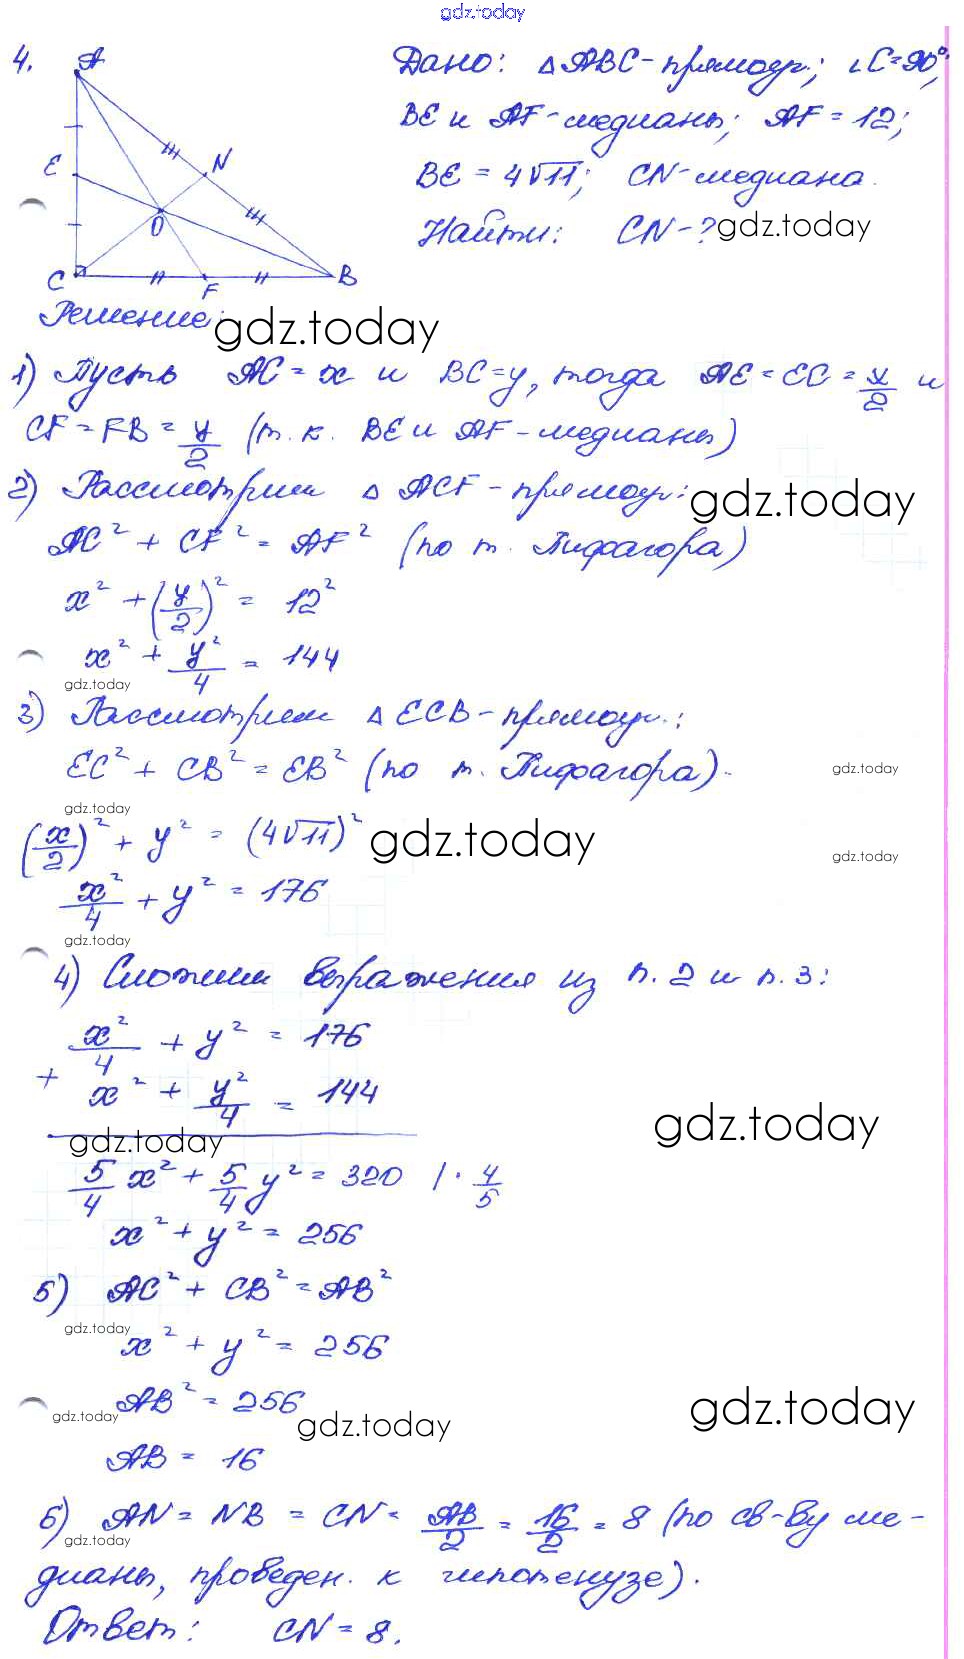 gdz.today
4.
A
E
N
O
C
F
B
Дано: △ABC-прямоуг.; ∠C=90°;
BE и AF-медианы; AF=12;
BE=4√11; CN-медиана.
Найти: CN-?
gdz.today
Решение:
gdz.today
1) Пусть AC=x и BC=y, тогда AE=EC=x/2 и
CF=FB=y/2 (т.к. BE и AF-медианы)
2) Рассмотрим △ACF-прямоуг.:
gdz.today
AC²+CF²=AF² (по т. Пифагора)
x²+(y/2)²=12²
x²+y²/4=144
gdz.today
3) Рассмотрим △ECB-прямоуг.:
EC²+CB²=EB² (по т. Пифагора).
gdz.today
gdz.today
(x/2)²+y²=(4√11)²
gdz.today
gdz.today
x²/4+y²=176
gdz.today
4) Сложим выражения из п.2 и п.3:
x²/4+y²=176
+
x²+y²/4=144
gdz.today
gdz.today
5/4x²+5/4y²=320 |·4/5
x²+y²=256
5) AC²+CB²=AB²
gdz.today
x²+y²=256
AB²=256
gdz.today
gdz.today
gdz.today
AB=16
6) AN=NB=CN=AB/2=16/2=8 (по св-ву ме-
gdz.today
дианы, проведен. к гипотенузе).
Ответ: CN=8.